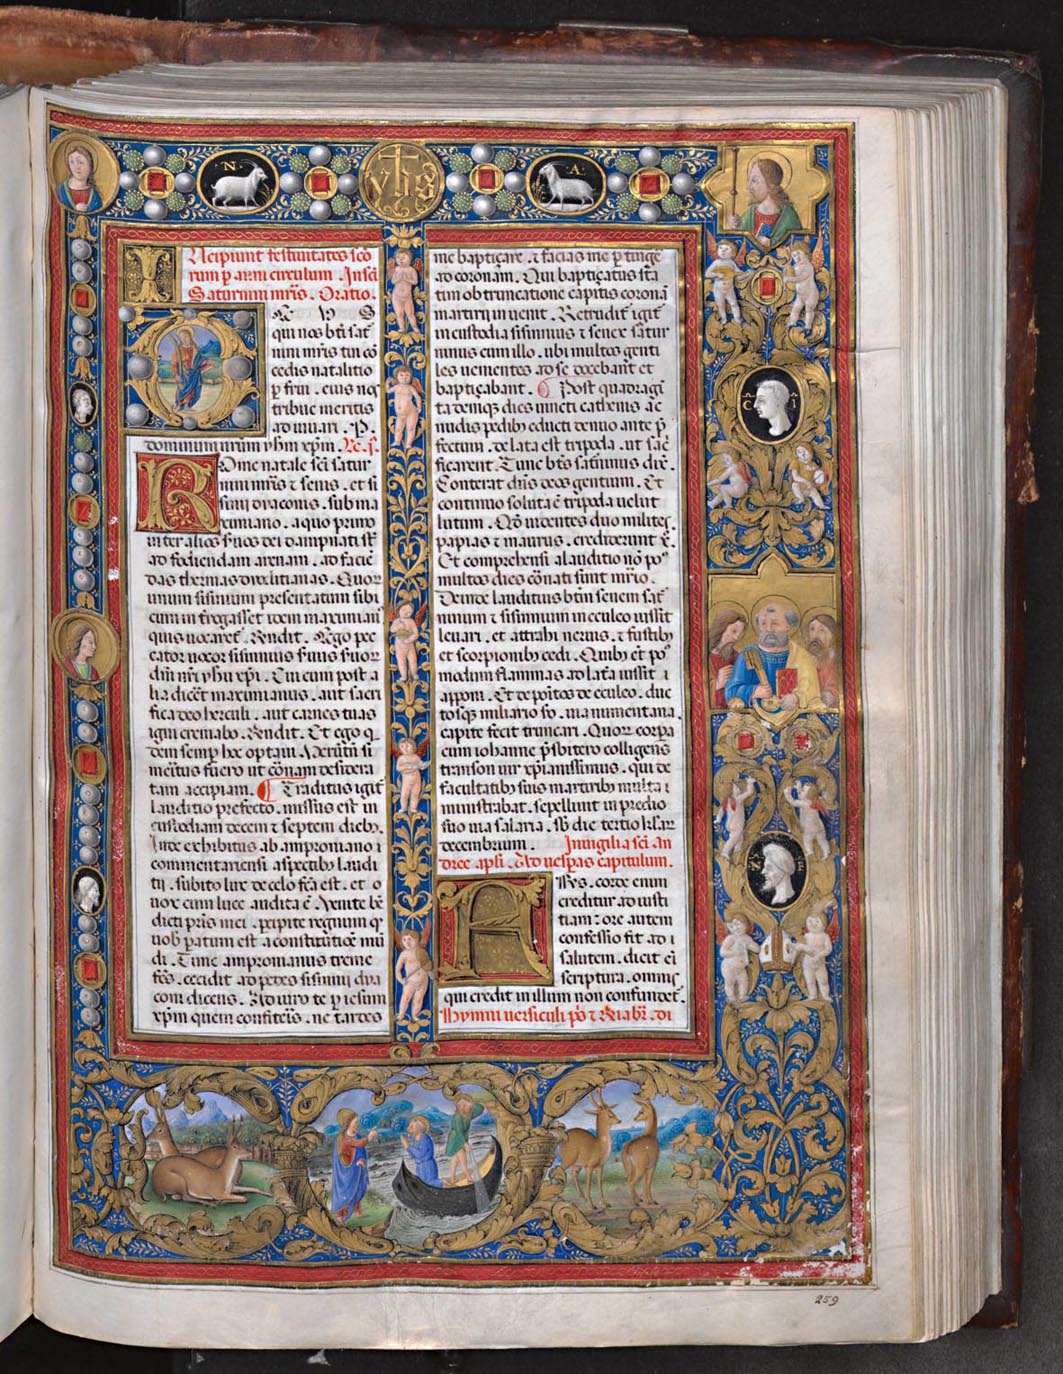 N
yhs
A
Incipiunt festiuitates sco
rum p anni circulum. In sci
Saturnini mris. Oratio.
DEUS
qui nos bti sat
nini mris tui co
cedis natalitio
p frui. eius nos
tribue meritis
adiuuari. P.
dominum nrm yhm xpm.
Rome natale sci satur
nini mris et senis. et si
sinii diaconis. sub ma
ximiano. a quo primo
inter alios suos dei damnati st
ad fodiendam arenam. ad facie
das thermas dioclitianas. Quor
unum sisinium presentatum sibi
cum interrogasset idem maximian
quis uocaret. Rendit. Ego pec
cator uocor sisinnius seruus seruor
dni nri yhu xpi. Cui cum post a
lia dicet maximianus. aut sacri
fica deo herculi. aut carnes tuas
igni cremabo. Rendit. Et ego q
dem semp hoc optaui
meritus fuero ut coronam desidera
tam accipiam. Traditus igit
lauditio prefecto. missus est in
custodiam decem et septem dieb.
Inde exhibitus ab amproniano
commentariensi aspectib laudi
tii. subito lux de celo fca est. et
uox cum luce audita e. Venite bn
dicti pris mei. pcipite regnum q
uob paratum est a constitutioe mu
di. Tunc ampronianus treme
fcs. cecidit ad pedes sisinnii dya
coni dicens. Adiuro te p iesum
xpm quem confiteris. ne tardes
me baptizare. et facias me p tinge
ad coronam. Qui baptizatus sta
tim ob truncatione capitis corona
martirii inuenit. Retrudit igit
in custodia sisinnius et senex satur
ninus cum illo. ubi multos genti
les uenientes ad se docebant et
baptizabant. Post quadragi
ta deniq dies uincti cathenis ac
nudis pedib educti denuo ante p
fectum. delata est tripoda. ut sac
ficarent. Tunc bts saturninus dix.
Conterat dns deos gentium. Et
continuo soluta e tripoda uelut
lutum. Qd uidentes duo milites
papias et maurus. crediderunt x.
Et comprehensi a lauditio no po
multos dies coronati sunt mrio.
Deinde lauditius btm senem sat
ninum et sisinnium in eculeo iussit
leuari. et attrahi neruis. et fustib
et scorpionib cedi. Quib et po
modum flammas ad lata iussit
apponi. Et depositos de eculeo. duc
tosq miliario
capite fecit truncari. Quor corpa
cum iohanne psbitero colligens
transon uir xpianissimus. qui de
facultatib suis martirib multa
ministrabat. sepeliuit in predio
suo uia salaria. sub die tertio klar
decembrium. In uigilia sci an
dree apsi. Ad uespas capitulum.
FRs. corde enim
creditur ad iusti
tiam: ore autem
confessio fit ad
salutem. dicit eni
scriptura. omnis
qui credit in illum non confundet.
Hymni uersiculi
259